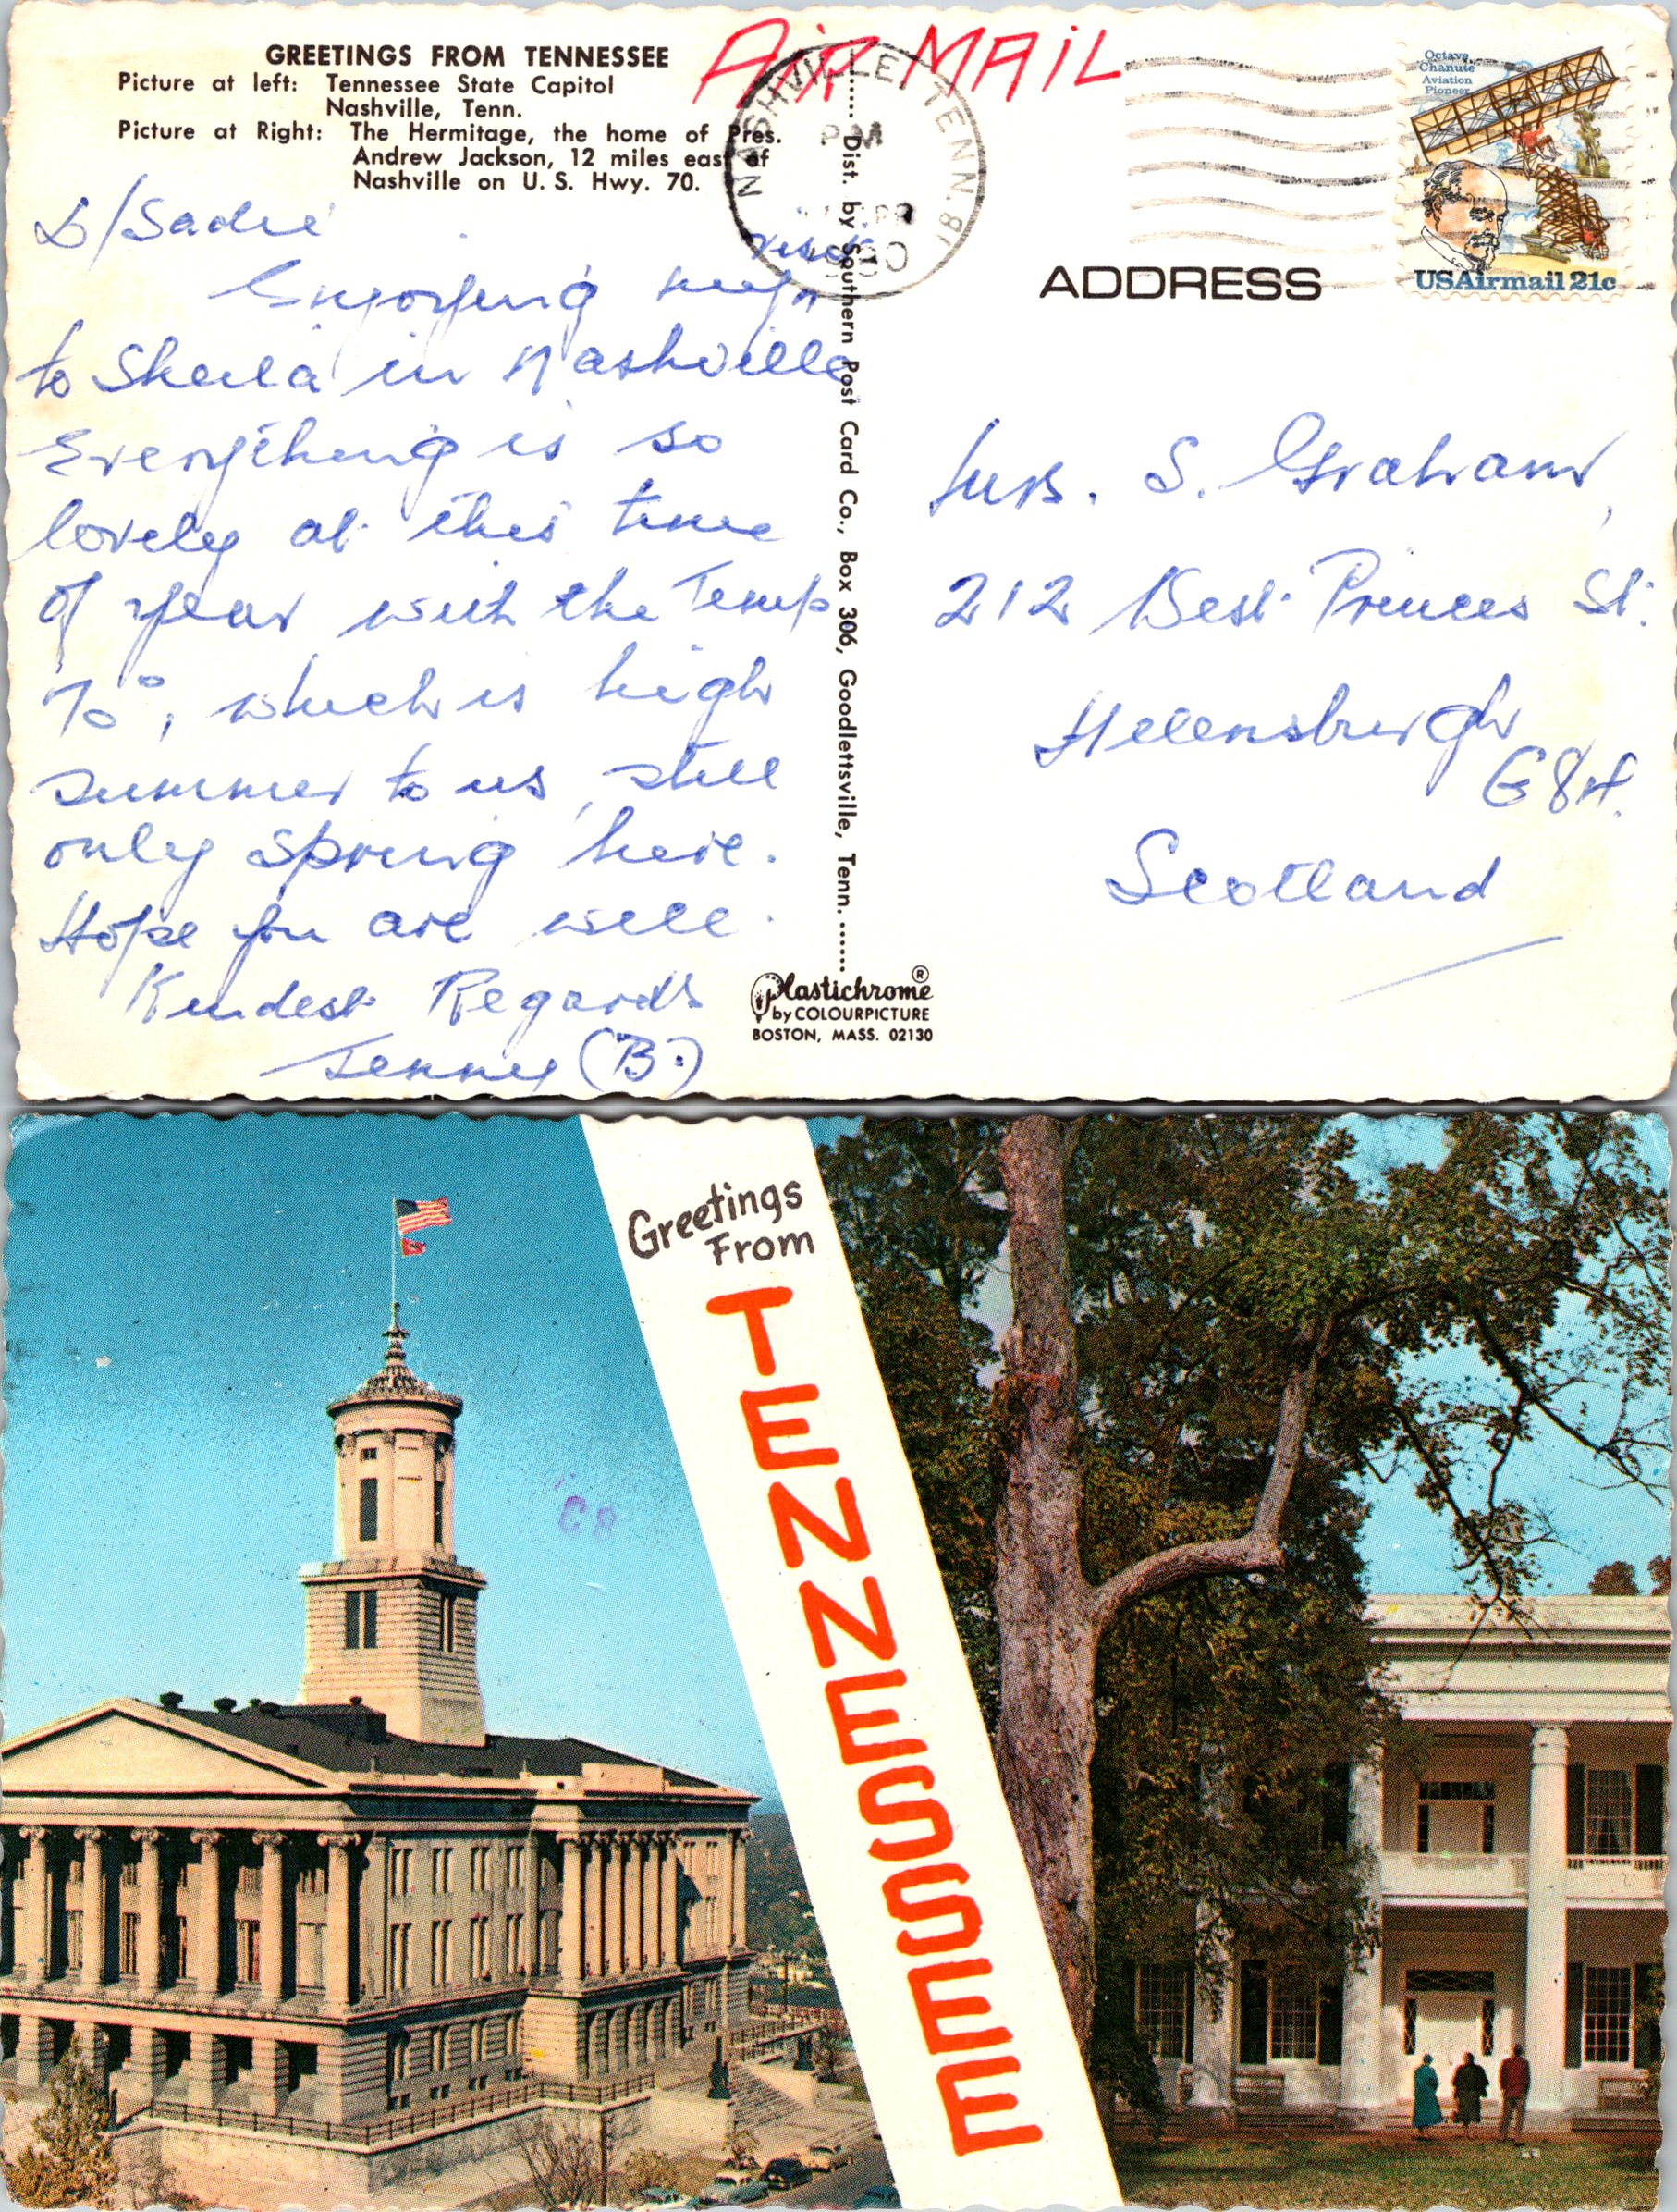 GREETINGS FROM TENNESSEE
Picture at left: Tennessee State Capitol
Nashville, Tenn.
Picture at Right: The Hermitage, the home of Pres.
Andrew Jackson, 12 miles east of
Nashville on U. S. Hwy. 70.
AIR MAIL
NASHVILLE, TENN.
PM
Octave
Chanute
Aviation
Pioneer
USAirmail 21c
ADDRESS
D/Sadie
Enjoying my visit
to Sheila in Nashville
Everything is so
lovely at this time
of year with the Temp
70°, which is high
summer to us, still
only spring here.
Hope you are well.
Kindest Regards
Jenny (B.)
Dist. by Southern Post Card Co., Box 306, Goodlettsville, Tenn.
Plastichrome®
by COLOURPICTURE
BOSTON, MASS. 02130
Mrs. S. Graham,
212 West Princes St.
Helensburgh
G84.
Scotland
Greetings
From
TENNESSEE